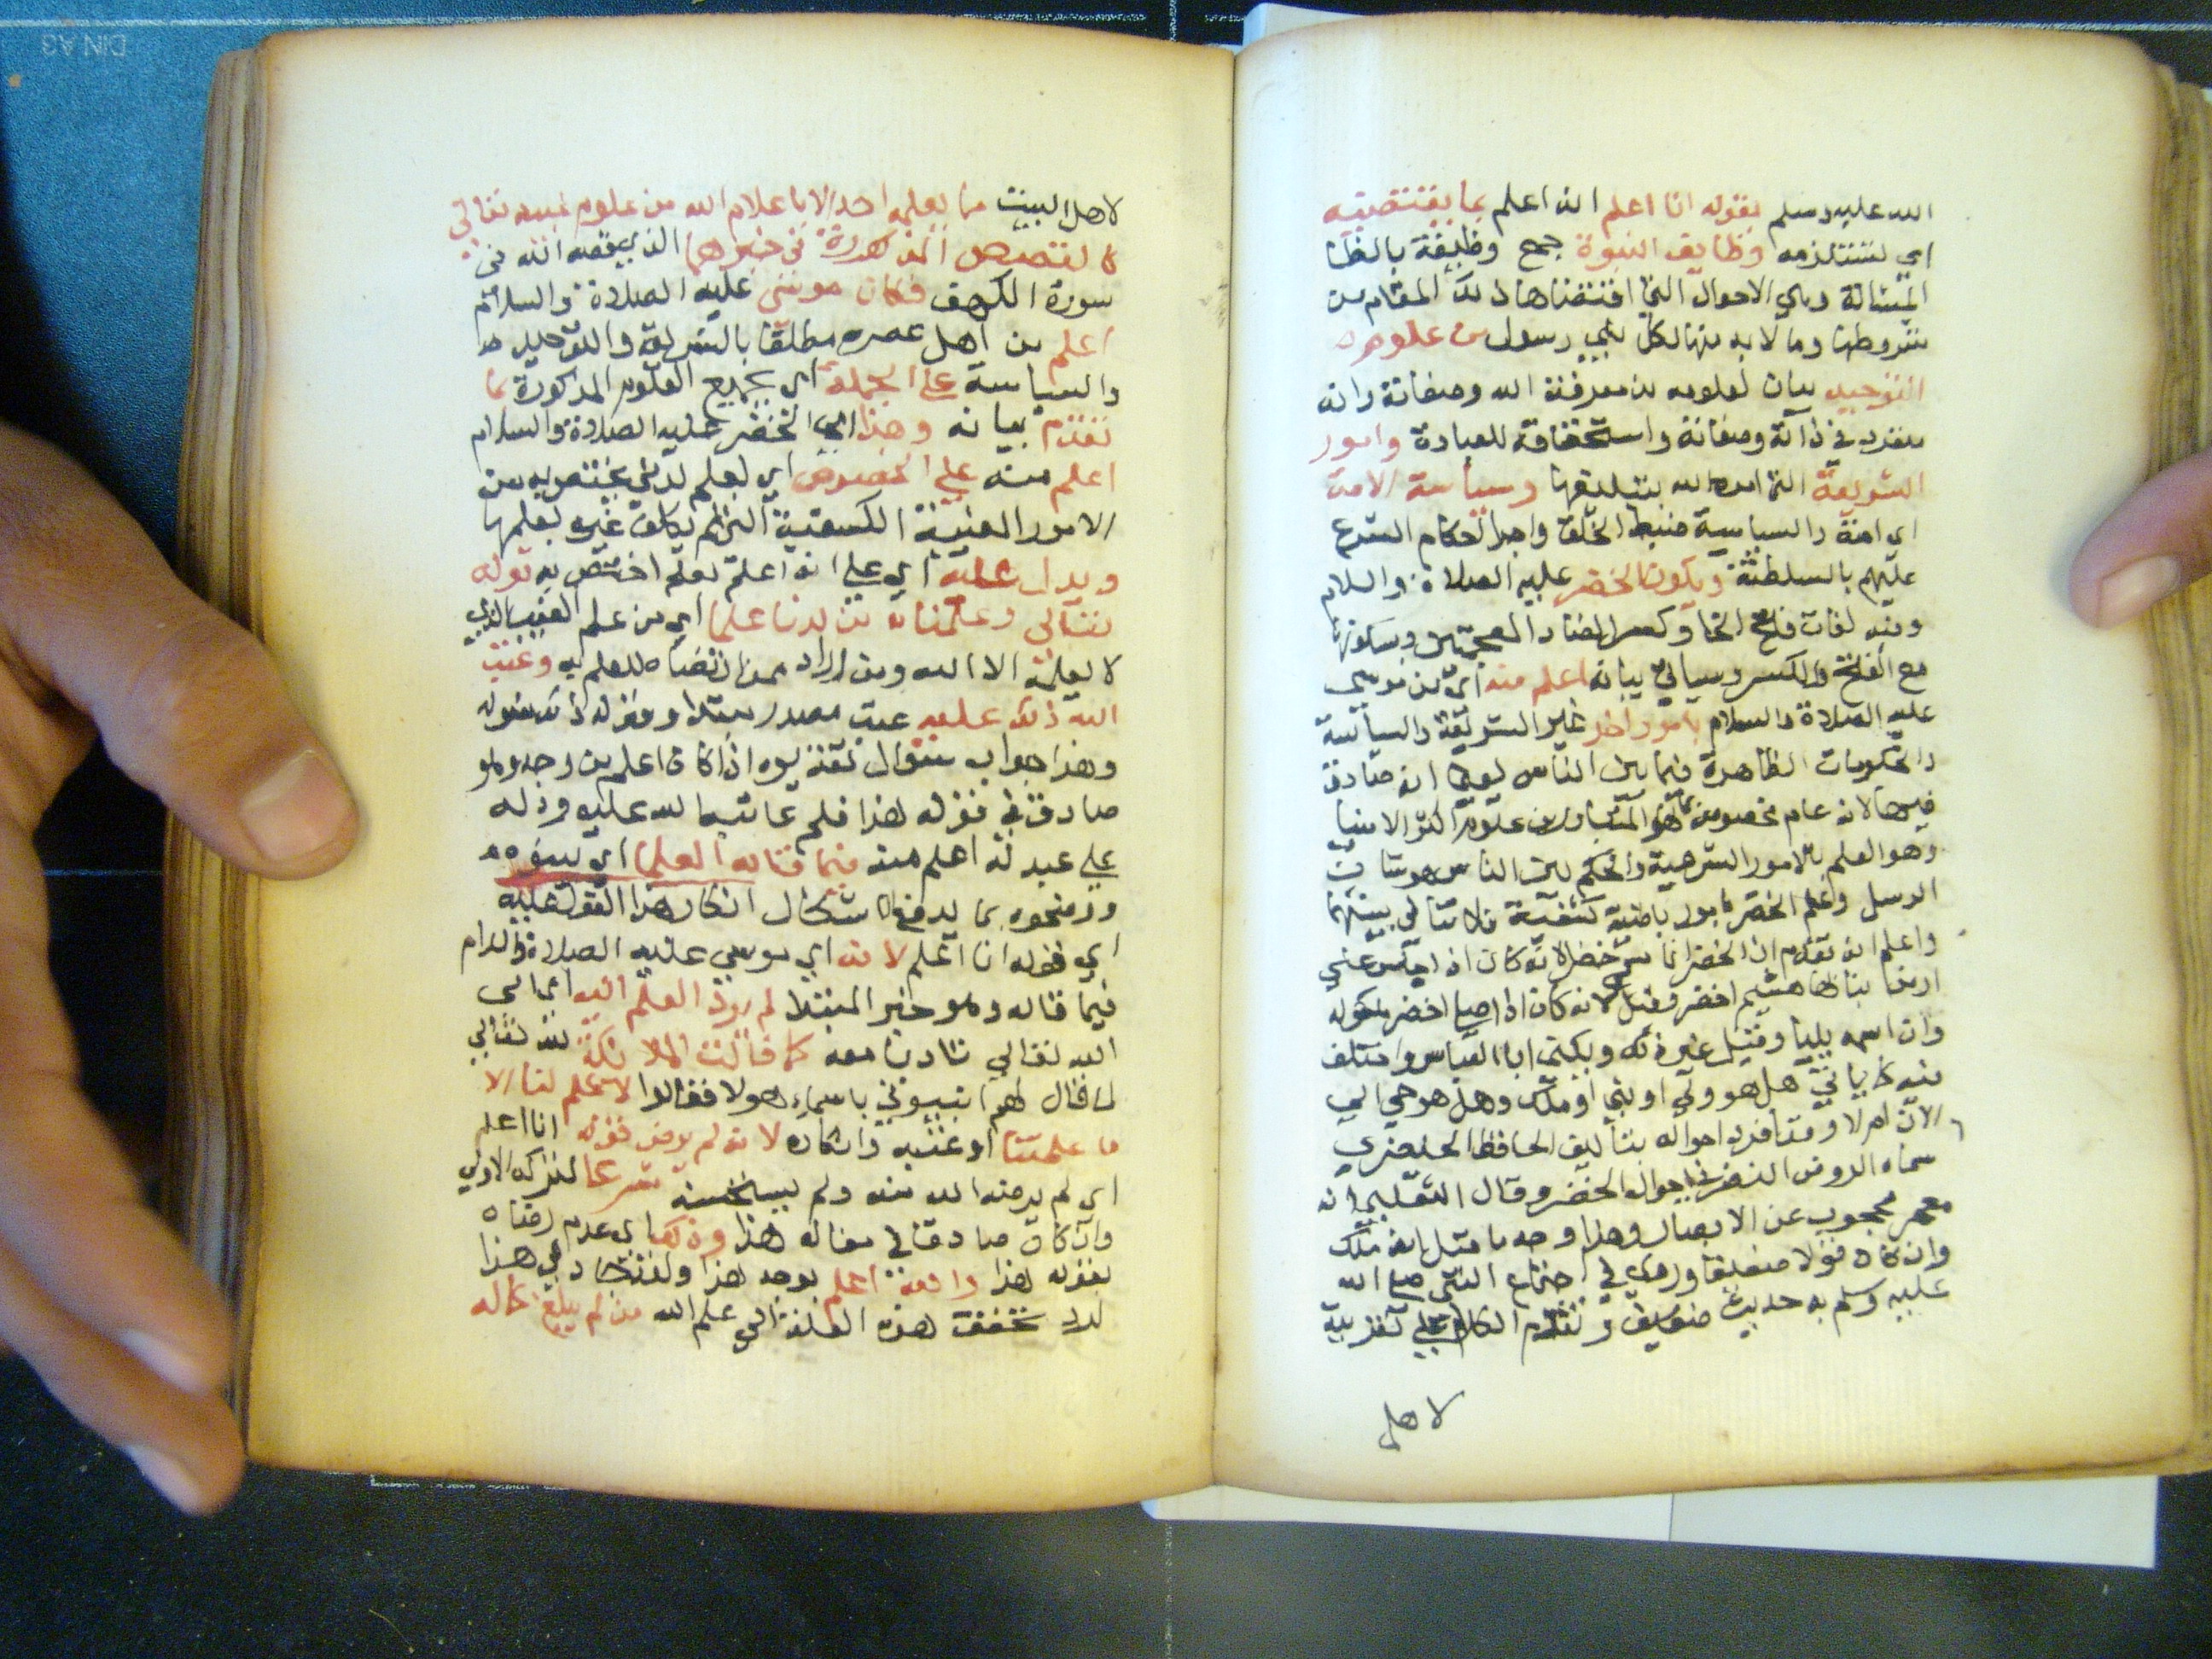 الله عليه وسلم بقوله انا اعلم انه اعلم بما يقتضيه
اي تستلزمه وظايف النبوة جمع وظيفة بالظا
المشالة وهي الاحوال التي اقتضاها ذلك المقام من
شروطها وما لا بد منها لكل نبي رسول من علوم
التوحيد بيان لعلومه من معرفة الله وصفاته وانه
منفرد في ذاته وصفاته واستحقاقه للعبادة وامور
الشريعة التي امره الله بتبليغها وسياسة الامة
اي امته والسياسة ضبط الخلق واجرا احكام الشرع
عليهم بالسلطنة ويكون الخضر عليه الصلاة والسلام
وفيه لغات فتح الخا وكسر الضاد المعجمتين وسكونها
مع الفتح والكسر وسياتي بيانه اعلم منه اي من موسى
عليه الصلاة والسلام بامور اخر غير الشريعة والسياسة
والحكومات الظاهرة فيما بين الناس ليعلم انه صادق
فيها لانه عام مخصوص بما هو المتبادر من علوم اكثر الانبيا
وهو العلم بالامور الشرعية والحكم بين الناس هو شان
الرسل وعلم الخضر بامور باطنية كشفية فلا تنافي بينهما
واعلم انه تقدم ان الخضر انما سمي خضرا لانه كان اذا جلس على
ارض بها هشيم اخضر وقيل لانه كان اذا صلى اخضر ما حوله
وان اسمه بليا وقيل غير ذلك ويكنى ابا العباس واختلف
فيه كما ياتي هل هو ولي او نبي او ملك وهل هو حي الى
الان ام لا وقد افرد احواله بتأليف الحافظ الخيضري
سماه الروض النضر في احوال الخضر وقال الثعلبي انه
معمر محجوب عن الابصار وهذا وجه ما قيل انه ملك
وان كان قولا ضعيفا وروي في اجتماع النبي صلى الله
عليه وسلم به حديث ضعيف وتقدم الكلام على تعزيته
لاهل
لاهل البيت مما يعلمه احد الا باعلام الله من علوم غيبه تعالى
كالقصص المذكورة في خبرهما الذي قصه الله في
سورة الكهف فكان موسى عليه الصلاة والسلام
اعلم من اهل عصره مطلقا بالشريعة والتوحيد
والسياسة على الجملة اي بجميع العلوم المذكورة كما
تقدم بيانه وهذا اي الخضر عليه الصلاة والسلام
اعلم منه على الخصوص اي بعلم لدني يختص به من
الامور الغيبية الكشفية التي لم يكلف غيره بعلمها
ويدل عليه اي على انه اعلم بعلم اختص به قوله
تعالى وعلمناه من لدنا علما اي من علم الغيب الذي
لا يعلمه الا الله ومن اراد ممن ارتضاه للعلم به وعتب
الله ذلك عليه عتب مصدر مبتدا
وهذا جواب سؤال تقديره اذا كان اعلم من وجه وهو
صادق في قوله هذا فلم عاتبه الله عليه ودله
على عبد له اعلم منه فيما قاله العلما اي
ونحوه بما يدفع الاشكال انكار هذا القول عليه
اي قوله انا اعلم لانه اي موسى عليه الصلاة والسلام
فيما قاله وهو خبر المبتدا لم يرد العلم اليه اي الى
الله تعالى تادبا معه كما قالت الملائكة لله تعالى
لما قال لهم انبيوني باسماء هولا فقالوا لا علم لنا الا
ما علمتنا او عتبه وانكاره لانه لم يرض قوله انا اعلم
اي لم يرضه الله منه ولم يستحسنه شرعا لتركه الاولى
وان كان صادقا في مقاله هذا وذلك اي عدم رضاه
بقوله هذا والله اعلم بوجه هذا
من لم يبلغ كماله